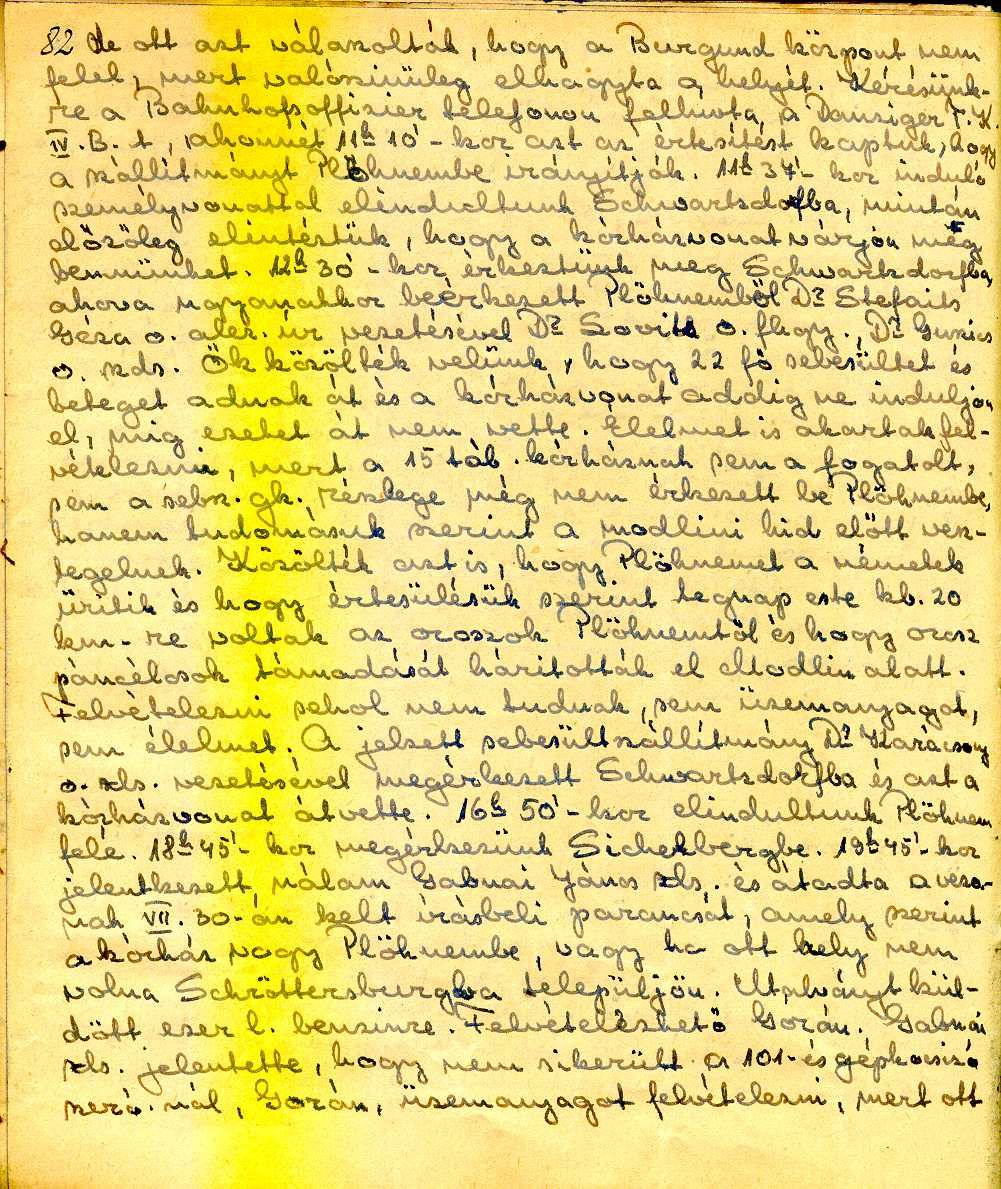 82 de ott azt válaszolták, hogy a Burgund központ nem
felel, mert valószinüleg elhagyta a helyét. Kérésünk-
re a Bahnhofsoffizier telefonon felhivta, a Danziger T.K.
IV.B.-t, ahonnét 11h 10'-kor azt az értesítést kaptuk, hogy
a szállítmányt Plöhnembe irányítják. 11h 37'-kor induló
személyvonattal elindultunk Schwartzdorfba, miután
előzőleg elintéztük, hogy a kórházvonat várjon még
bennünket. 12h 30'-kor érkeztünk meg Schwartzdorfba,
ahova ugyanakkor beérkezett Plöhnemből Dr Stefaits
Géza o. alez. úr vezetésével Dr Sovitt o. fhgy., Dr Guzics
o. zds. Ők közölték velünk, hogy 22 fő sebesültet és
beteget adnak át és a kórházvonat addig ne induljon
el, mig ezeket át nem vette. Élelmet is akartak fel-
vételezni, mert a 15 táb. kórháznak sem a fogatolt,
sem a sebsz. gk. részlege még nem érkezett be Plöhnembe,
hanem tudomásuk szerint a modlini hid előtt vesz-
tegelnek. Közölték azt is, hogy Plöhnemet a németek
ürítik és hogy értesülésük szerint tegnap este kb. 20
km-re voltak az oroszok Plöhnemtől és hogy orosz
páncélosok támadását hárították el Modlin alatt.
Felvételezni sehol nem tudnak, sem üzemanyagot,
sem élelmet. A jelzett sebesültszállítmány Dr Karácsony
o. zls. vezetésével megérkezett Schwartzdorfba és azt a
kórházvonat átvette. 16h 50'-kor elindultunk Plöhnem
felé. 18h 45'-kor megérkezünk Sichelbergbe. 19h 45'-kor
jelentkezett nálam Gabnai János zls. és átadta a veze-
nak VII. 30-án kelt írásbeli parancsát, amely szerint
a kórház vagy Plöhnembe, vagy ha ott hely nem
volna Schröttersburgba települjön. Utalványt kül-
dött ezer l. benzinre. Felvételezhető Gorán. Gabnai
zls. jelentette, hogy nem sikerült a 101-és gépkocsizó
szerő. nál, Gorán, üzemanyagot felvételezni, mert ott